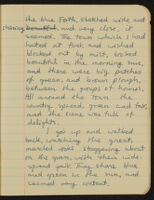 the blue Forth, stretched wide and
shining beautiful, and very close, it
seemed. The town which I had
hated at first, and wished
blotted out by mist, looked
beautiful in the morning sun,
and there were big patches
of green, and brown plough,
between the groups of houses.
All around the town the
country spread, green and fair,
and the scene was full of
delight.
I got up and walked
back, watching the great,
marled rooks staggering about
on the grass, with their wide
spread gait. They shone blue
and green in the sun, and
seemed very content.